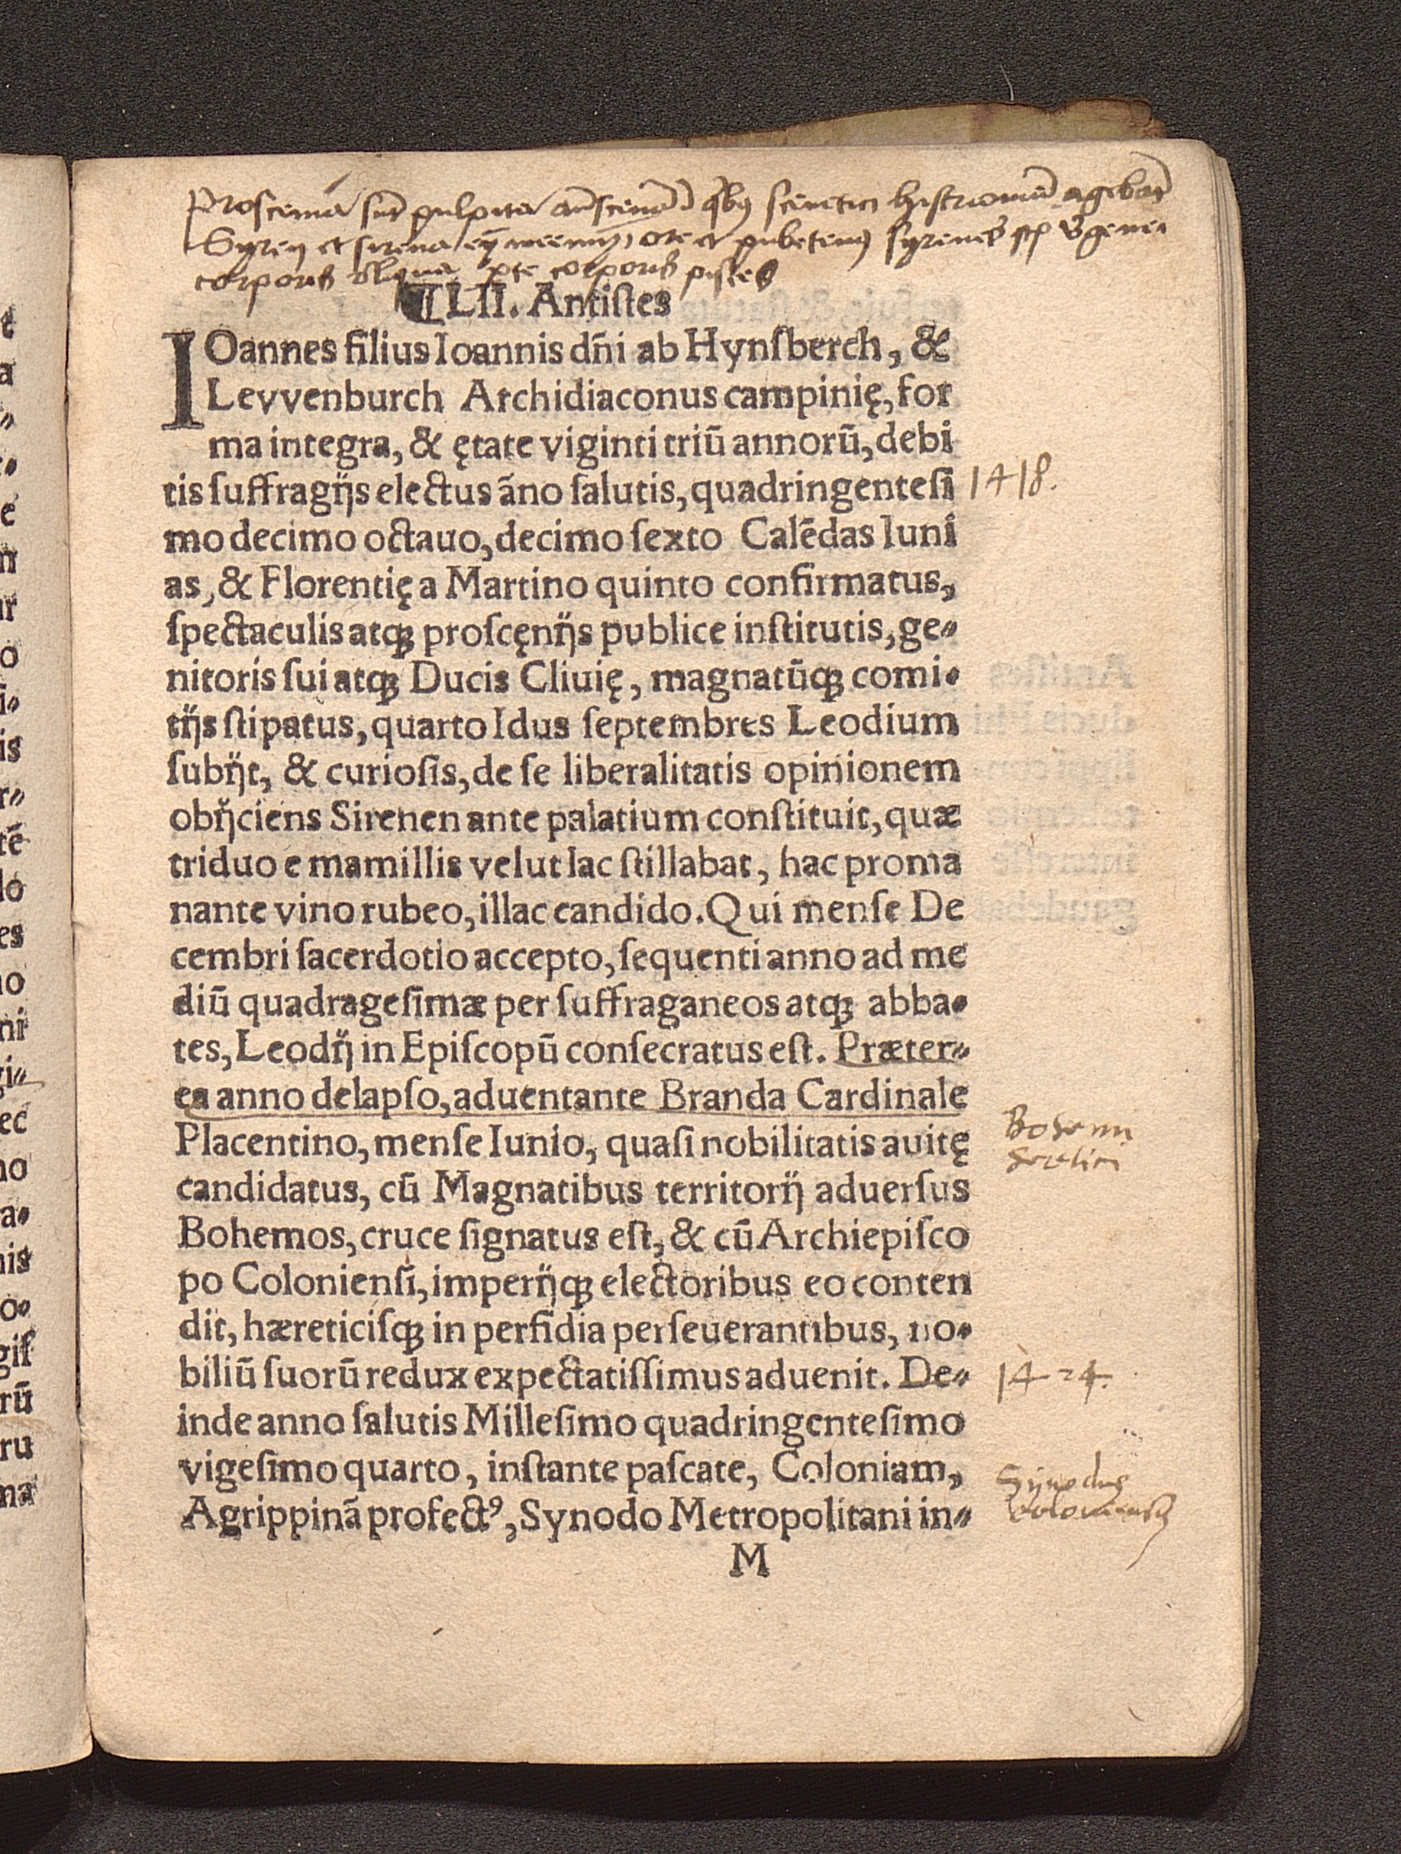 Proscenia sunt pulpita
corporis pte corporis pisces
¶LII. Antiſtes
IOannes filius Ioannis dn̄i ab Hynſberch, &
Levvenburch Archidiaconus campinię, for
ma integra, & ętate viginti triū annorū, debi
tis ſuffragijs electus āno ſalutis, quadringenteſi 1418.
mo decimo octauo, decimo ſexto Calēdas Iuni
as, & Florentię a Martino quinto confirmatus,
ſpectaculis atq; proſcęnijs publice inſtitutis, ge⸗
nitoris ſui atq; Ducis Cliuię, magnatūq; comi⸗
tijs ſtipatus, quarto Idus ſeptembres Leodium
ſubijt, & curioſis, de ſe liberalitatis opinionem
obijciens Sirenen ante palatium conſtituit, quæ
triduo e mamillis velut lac ſtillabat, hac proma
nante vino rubeo, illac candido. Qui menſe De
cembri ſacerdotio accepto, ſequenti anno ad me
diū quadrageſimæ per ſuffraganeos atq; abba⸗
tes, Leodij in Epiſcopū conſecratus eſt. Præter⸗
ea anno delapſo, aduentante Branda Cardinale
Placentino, menſe Iunio, quaſi nobilitatis auitę
Bohemi
heretici
candidatus, cū Magnatibus territorij aduerſus
Bohemos, cruce ſignatus eſt, & cū Archiepiſco
po Colonienſi, imperijq; electoribus eo conten
dit, hæreticiſq; in perfidia perſeuerantibus, no⸗
biliū ſuorū redux expectatiſſimus aduenit. De⸗ 1424.
inde anno ſalutis Milleſimo quadringenteſimo
vigeſimo quarto, inſtante paſcate, Coloniam,
Synodus
coloniensis
Agrippinā profectꝰ, Synodo Metropolitani in⸗
M